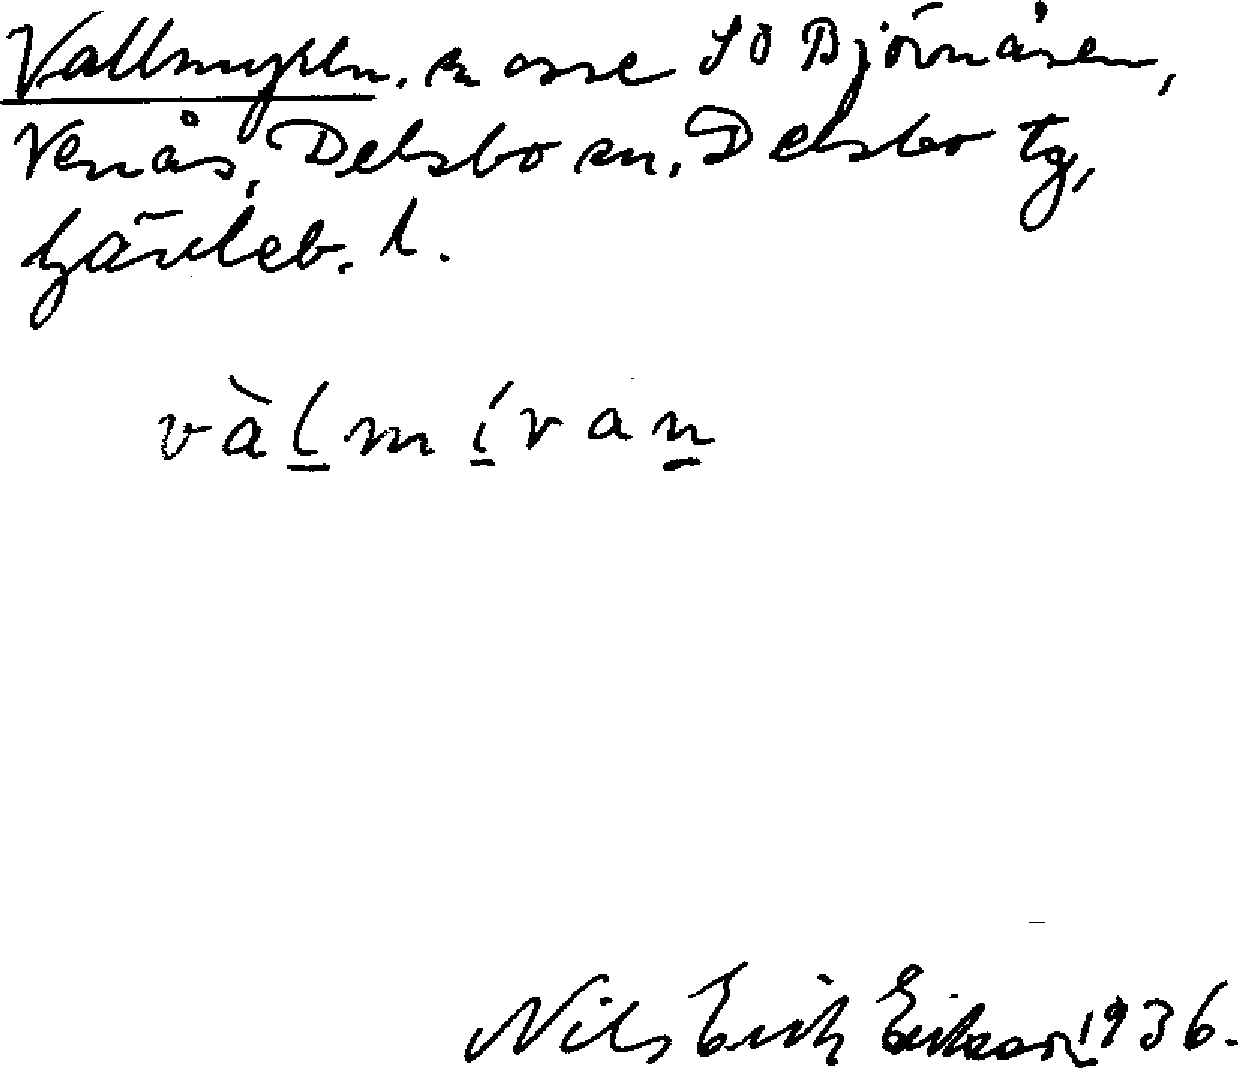 Vallmyren, en osse SO Björnåsen,
Venås, Delsbo sn. Delsbo tg,
Gävleb. l.
vàlmívan
Nils Erik Erikson 1936.